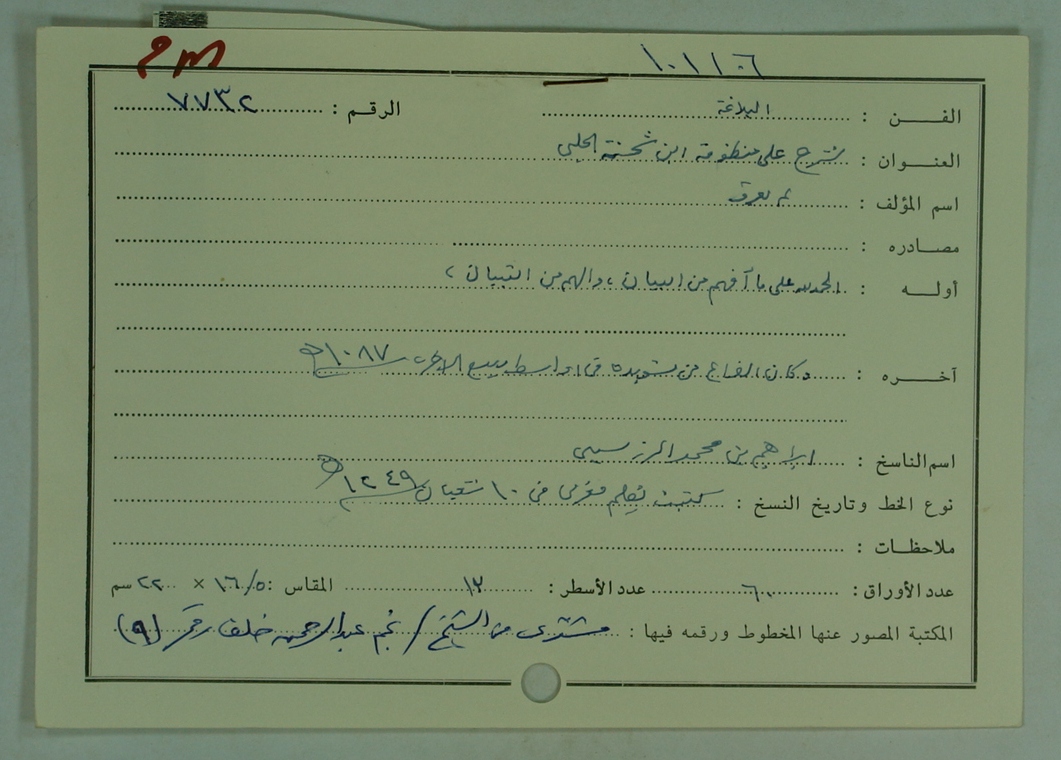 ١٠١١٠٦
الفــن : البلاغة الرقم : ٧٧٣٢
العنــوان : شرح على منظومة ابن شحنة الحلبي
اسم المؤلف : لم يعرف
مصــادره :
أولــه : الحمد لله على ما أفهم من البيان ، والهم من التبيان ،
آخــره : وكان الفراغ من تسويده في اواسط ربيع الاخر ١٠٨٧ هـ
اسم الناسخ : ابراهيم بن محمد
نوع الخط وتاريخ النسخ : كتبت بقلم مغربي في ١٠ شعبان ١٢٤٩ هـ
ملاحظــات :
عدد الأوراق : ٦٠ عدد الأسطر : ١٣ المقاس : ١٦/٥ × ٢٢ سم
المكتبة المصور عنها المخطوط ورقمه فيها : مشترى من الشيخ / نجم عبدالرحمن خلف رقم (٩)